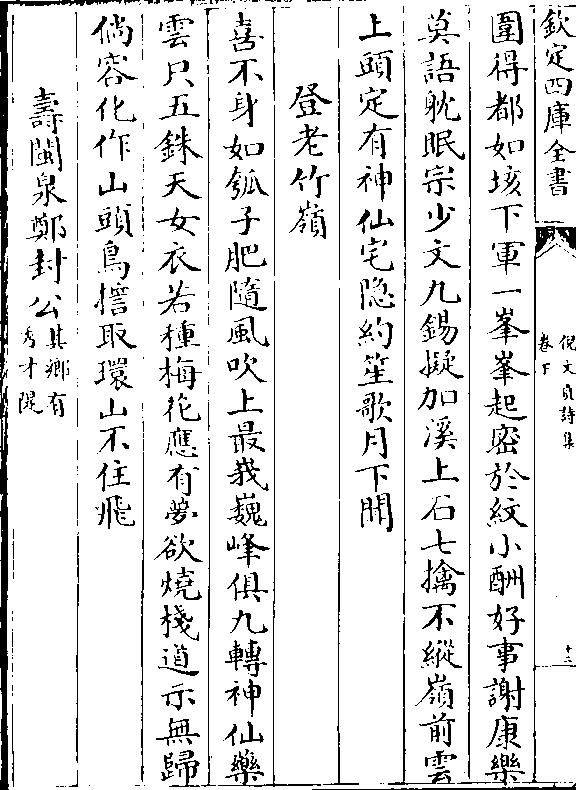 欽定四庫全書
倪文貞詩集
卷下
十三
圍得都如垓下軍一峯峯起密於紋小酬好事謝康樂
莫語躭眠宗少文九錫擬加溪上石七擒不縱嶺前雲
上頭定有神仙宅隐約笙歌月下聞
登老竹嶺
喜不身如瓠子肥隨風吹上最峩巍峰俱九轉神仙藥
雲只五銖天女衣若種梅花應有夢欲燒棧道示無歸
倘容化作山頭鳥擔取環山不住飛
壽閩泉鄭封公其鄉有
秀才隄